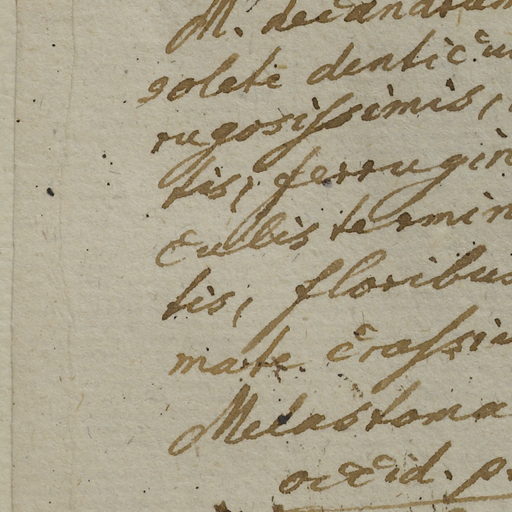 M. decandrum
solete denticu
rugosissimis,
tis, ferrugin
culis termin
tis, floribus
mate crassiu
Melastoma
occid. p.